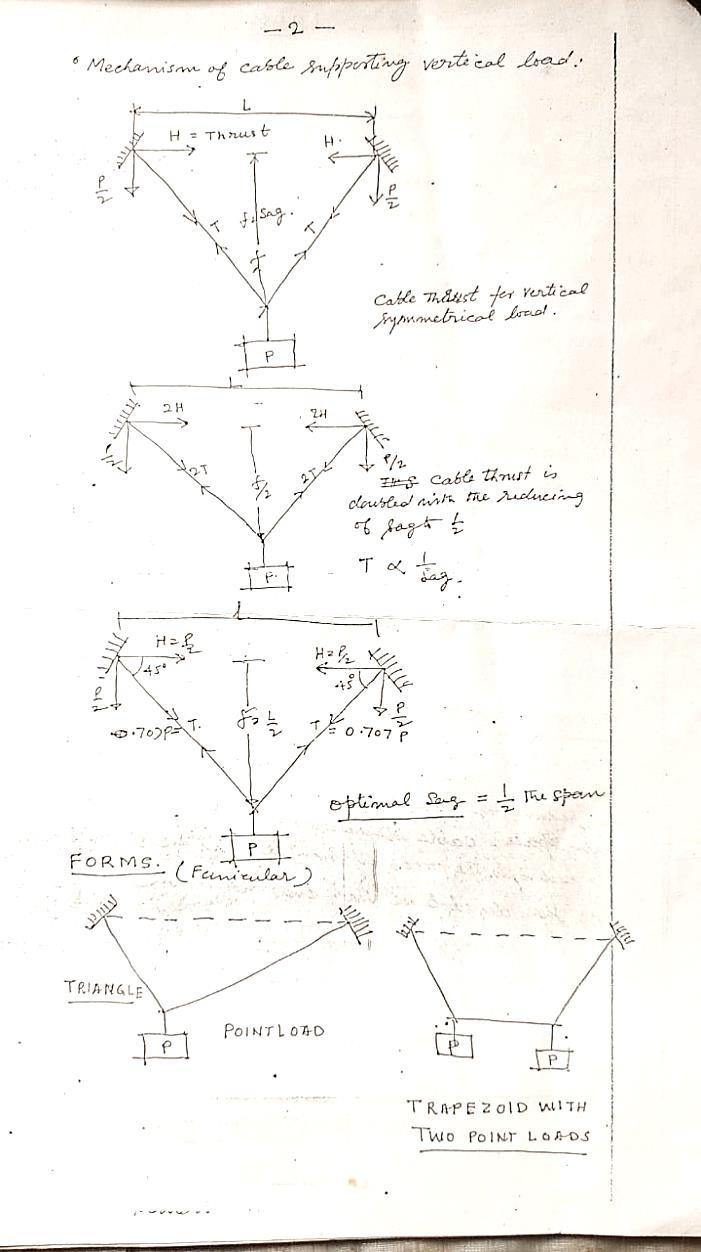 — 2 —
Mechanism of cable supporting vertical load.
L
H = Thrust
H.
P/2
P/2
T
f. Sag.
T
Cable Thrust for vertical
symmetrical load.
P
L
2H
2H
P/2
2T
f/2
2T
Cable thrust is
doubled with the reducing
of sag to 1/2
T ∝ 1/Sag.
P.
l
H = P/2
H = P/2
45°
45°
P/2
P/2
0.707P = T.
f = L/2
T = 0.707 P
optimal Sag = 1/2 The span
P
FORMS. (Funicular)
TRIANGLE
POINT LOAD
P
P
P
TRAPEZOID WITH
TWO POINT LOADS